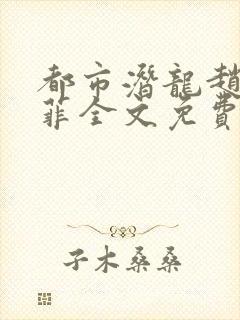 都市潛龍趙
菲全文免費
子木桑桑